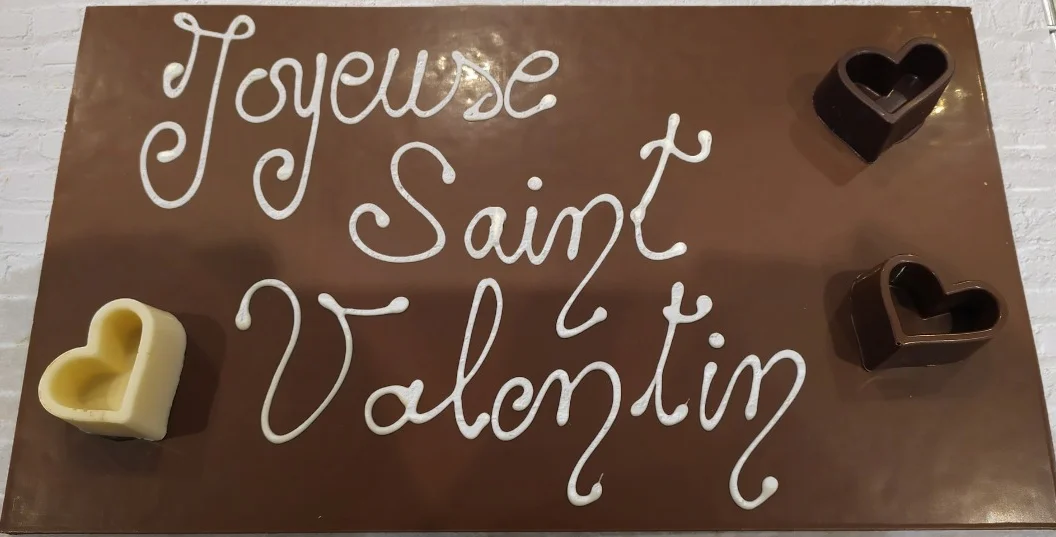 Joyeuse
Saint
Valentin